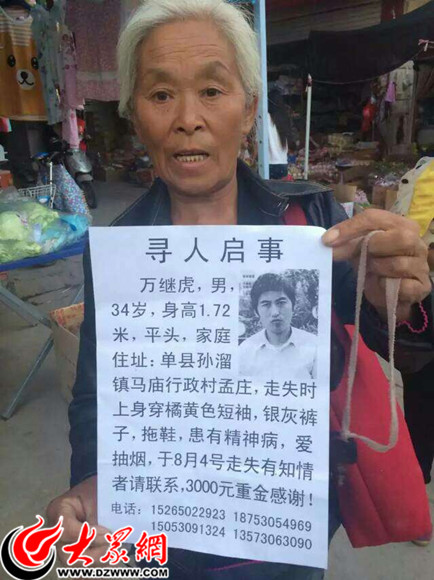 寻人启事
万继虎，男，
34岁，身高1.72
米，平头，家庭
住址：单县孙溜
镇马庙行政村孟庄，走失时
上身穿橘黄色短袖，银灰裤
子，拖鞋，患有精神病，爱
抽烟，于8月4号走失有知情
者请联系，3000元重金感谢！
电话：15265022923 18753054969
15053091324 13573063090
大众网
WWW.DZWWW.COM